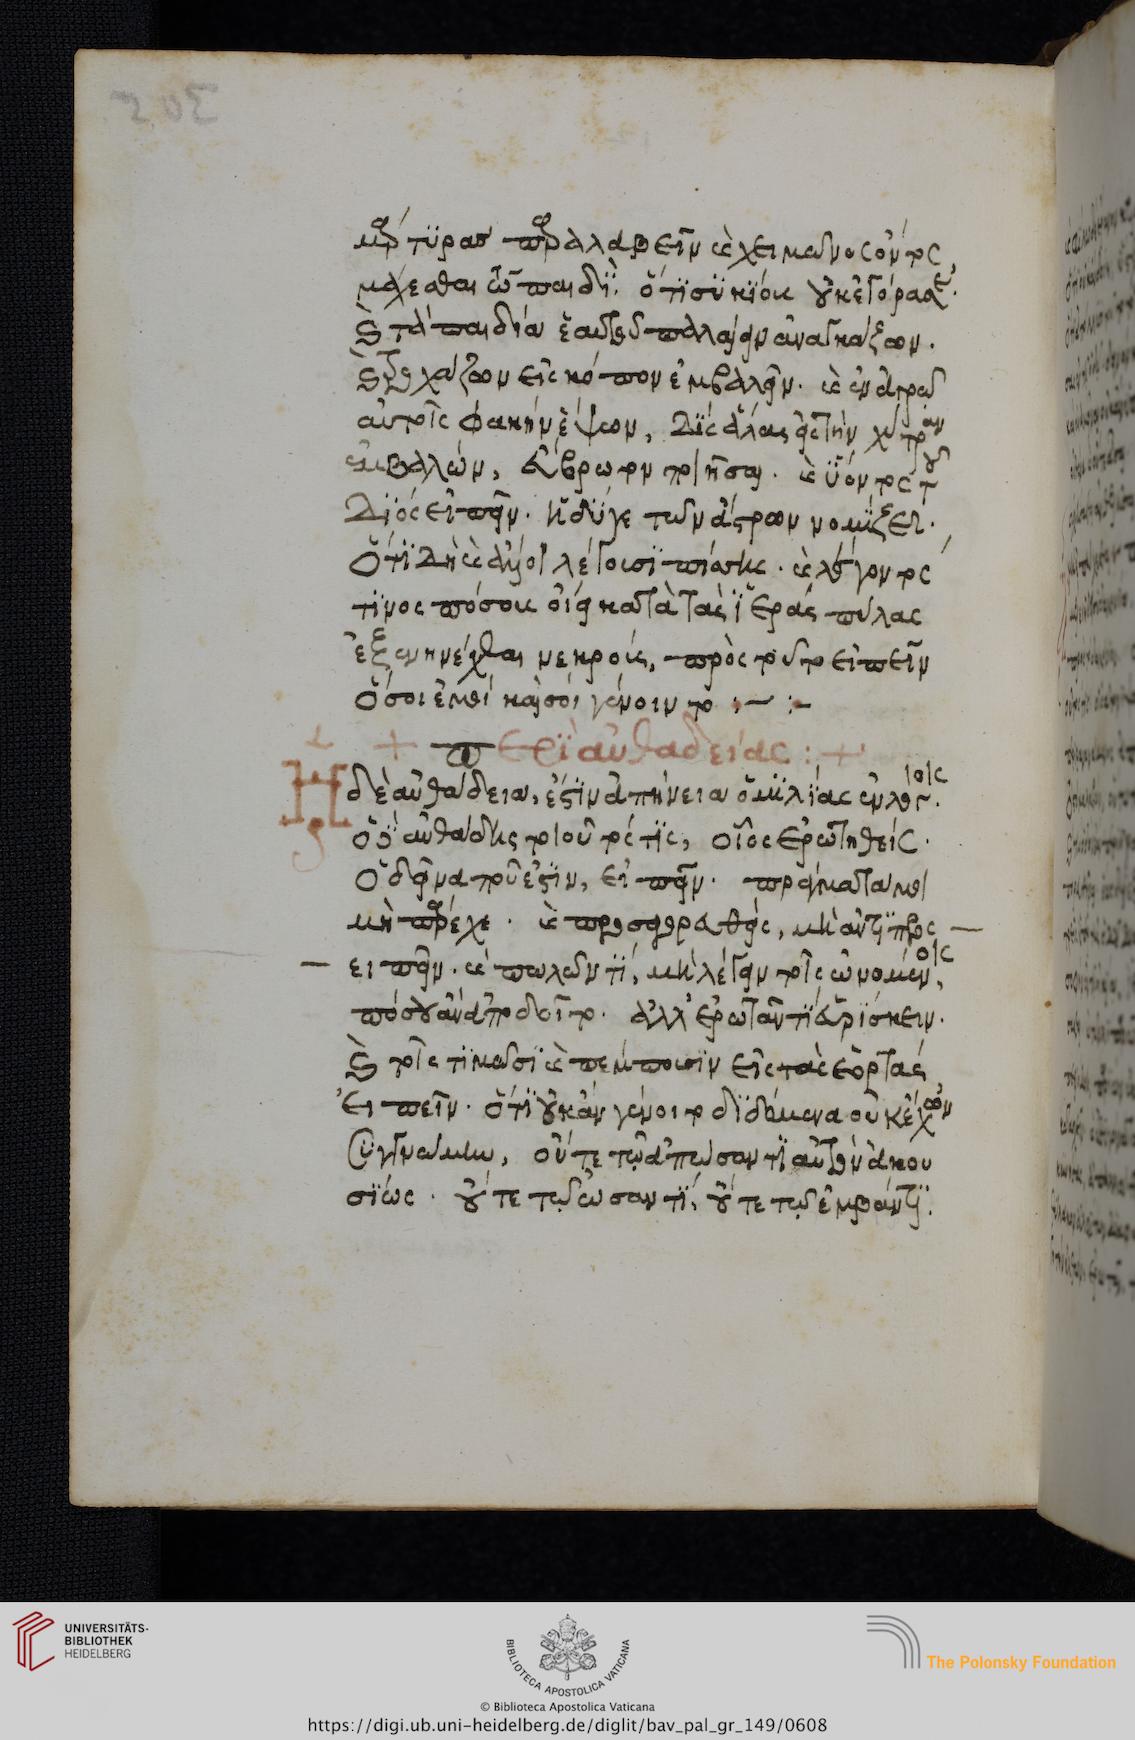 μάρτυρας παραλαβεῖν. καὶ χειμῶνος ὄντος
μάχεσθαι τῷ παιδὶ· ὅτι σικύους οὐκ ἠγόρασε.
καὶ τὰ παιδία ἑαυτῷ παλαίειν ἀναγκάζων.
καὶ τροχάζων εἰς κόπον ἐμβάλλειν. καὶ ἐν ἀγρῷ
αὐτοῖς φακὴν ἕψων, δὶς ἅλας εἰς τὴν χύτραν
ἐμβαλὼν, ἄβρωτον ποιῆσαι. καὶ ὕοντος τοῦ
Διὸς εἰπεῖν. ἡδύ γε τῶν ἄστρων νομίζει.
ὅτι δὴ καὶ οἱ ἄλλοι λέγουσι πίσσης. καὶ λέγοντός
τινος πόσους οἴει κατὰ τὰς ἱερὰς πύλας
ἐξενηνέχθαι νεκροὺς, πρὸς τοῦτο εἰπεῖν
ὅσοι ἐμοὶ καὶ σοὶ γένοιντο :— :—
+ περὶ αὐθαδείας : +
Ἡ δὲ αὐθάδεια, ἐστὶν ἀπήνεια ὁμιλίας ἐν λόγοις.
ὁ δὲ αὐθάδης τοιοῦτός τις, οἷος ἐρωτηθεὶς.
ὁ δεῖνα ποῦ ἐστιν, εἰπεῖν. πράγματά μοι
μὴ πάρεχε. καὶ προσαγορευθεὶς, μὴ ἀντιπροσ —
— ειπεῖν. καὶ πωλῶν τι, μὴ λέγειν τοῖς ὠνουμένοις,
πόσου ἂν ἀποδοῖτο. ἀλλ' ἐρωτᾶν τί εὑρίσκειν.
καὶ τοῖς τιμῶσι καὶ πέμπουσιν εἰς τὰς ἑορτὰς,
εἰπεῖν. ὅτι οὐκ ἂν γένοιτο διδόμενα. οὐκ ἔχων
συγγνώμην, οὔτε τῷ ἀπώσαντι αὐτὸν ἀκου
σίως. οὔτε τῷ ὤσαντι, οὔτε τῷ ἐμβάντι.
UNIVERSITÄTS-
BIBLIOTHEK
HEIDELBERG
BIBLIOTECA APOSTOLICA VATICANA
The Polonsky Foundation
© Biblioteca Apostolica Vaticana
https://digi.ub.uni-heidelberg.de/diglit/bav_pal_gr_149/0608